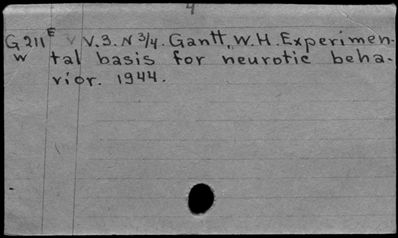 4
G211ᴱ V V.3. N 3/4. Gantt, W.H. Experimen-
w tal basis for neurotic beha-
vior. 1944.